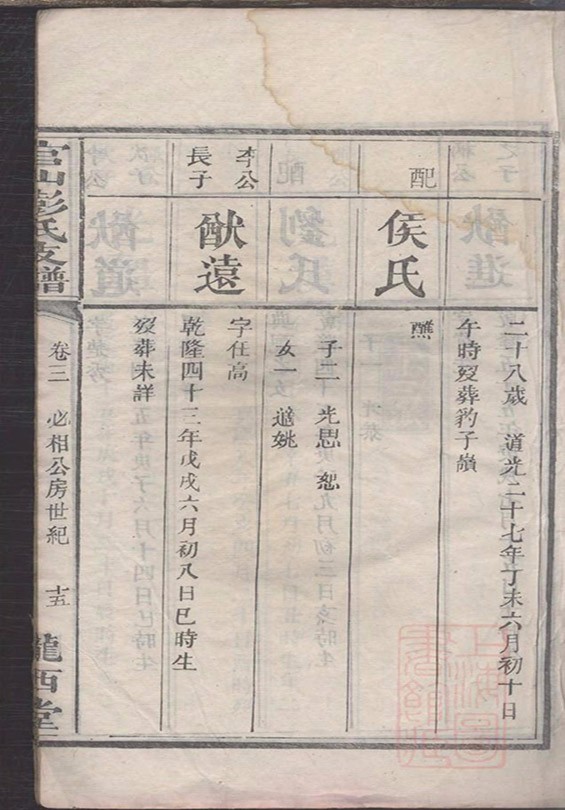 二十八歲 道光二十七年丁未六月初十日
午時歿葬豹子嶺
配
侯氏
醮
子二 光思 恕
女一 適姚
李公
長子
猷遠
字任高
乾隆四十三年戊戌六月初八日巳時生
歿葬未詳
官山彭氏支譜
卷三 必相公房世紀
十五
隴西堂